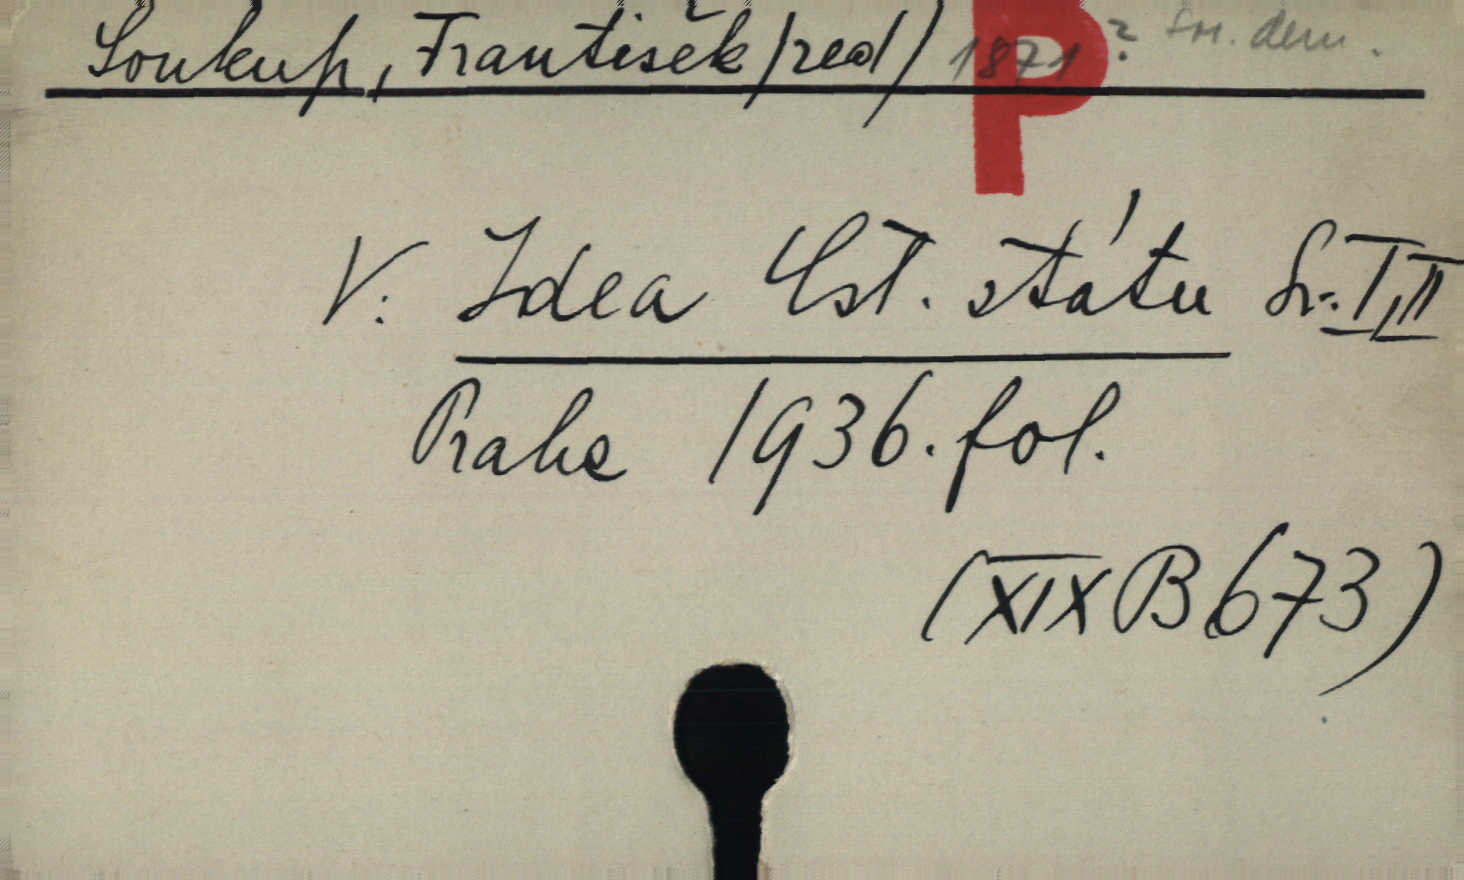 Soukup, František /red/ 1871? soc. dem.
P
V: Idea čsl. státu Sv. I, II
Praha 1936. fol.
(XIX B 673)